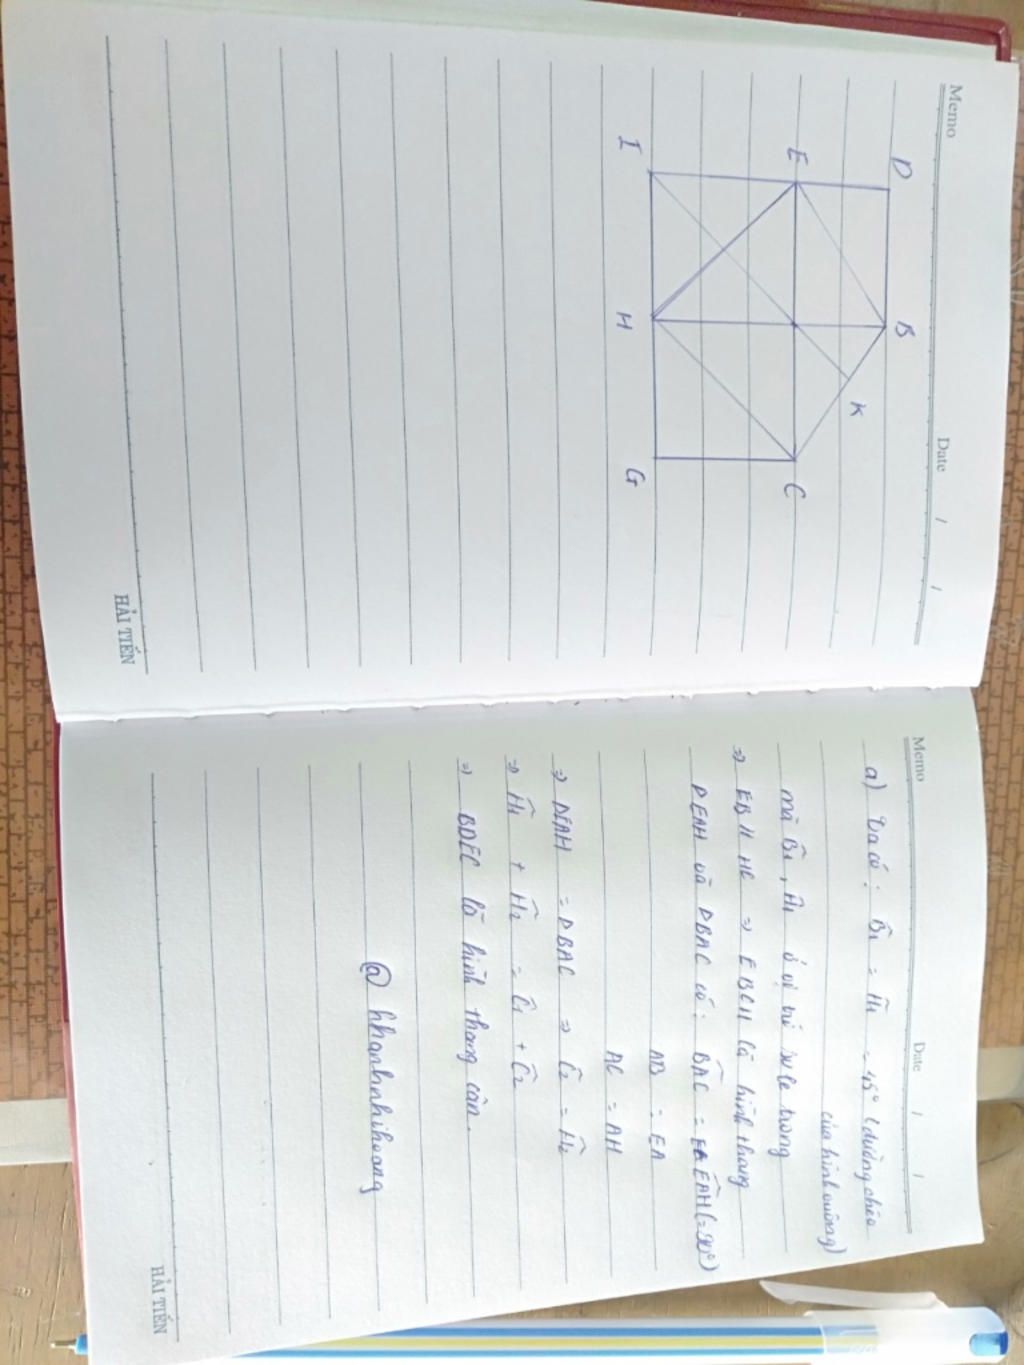 Memo
Date / /
D
B
K
E
C
I
H
G
HẢI TIẾN
Memo
Date / /
a) Ta có: B̂₁ = Ĥ₁ = 45° (đường chéo
của hình vuông)
mà B̂₁, Ĥ₁ ở vị trí so le trong
⇒ EB // HC ⇒ EBCH là hình thang
DEAH và DBAC có: BAC = EAH (= 90°)
AB = EA
AC = AH
⇒ DEAH = DBAC ⇒ Ĉ₂ = Ĥ₂
⇒ Ĥ₁ + Ĥ₂ = Ĉ₁ + Ĉ₂
⇒ BDEC là hình thang cân.
@ hhanhnhihoang
HẢI TIẾN